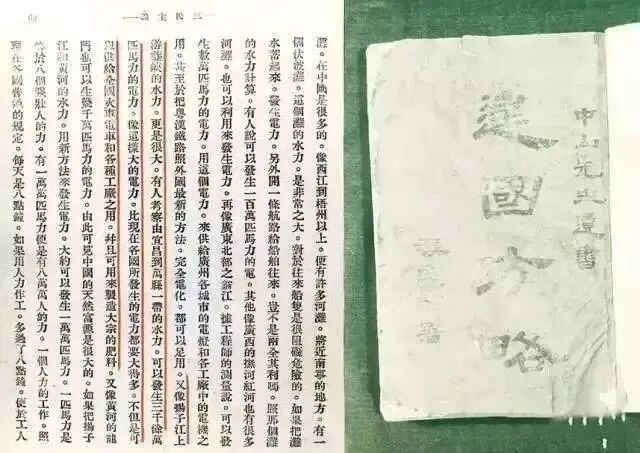 三民主義
灘。在中國是很多的。像西江到梧州以上。便有許多河灘。將近南寧的地方。有一
個伏波灘。這個灘的水力。是非常之大。對於往來船隻是很阻礙危險的。如果把灘
水蓄起來。發生電力。另外開一條航路給船舶往來。豈不是兩全其利嗎。照那個灘
的水力計算。有人說可以發生一百萬匹馬力的電。其他像廣西的撫河紅河也有很多
河灘。也可以利用來發生電力。再像廣東北部之翁江。據工程師的測量說。可以發
生數萬匹馬力的電力。用這個電力。來供給廣州各城市的電燈和各工廠中的電機之
用。甚至於把粵漢鐵路照外國最新的方法。完全電化。都可以足用。又像揚子江上
游夔峽的水力。更是很大。有人考察由宜昌到萬縣一帶的水力。可以發生三千餘萬
匹馬力的電力。像這樣大的電力。比現在各國所發生的電力都要大得多。不但是可
以供給全國火車電車和各種工廠之用。幷且可用來製造大宗的肥料。又像黃河的龍
門也可以生幾千萬匹馬力的電力。由此可見中國的天然富源是很大的。如果把揚子
江和黃河的水力。用新方法來發生電力。大約可以發生一萬萬匹馬力。一匹馬力是
等於八個強壯人的力。有一萬萬匹馬力便是有八萬萬人的力。一個人力的工作。照
現在各國普通的規定。每天是八點鐘。如果用人力作工。多過了八點鐘。便於工人
中山先生遺書
建國方略
署